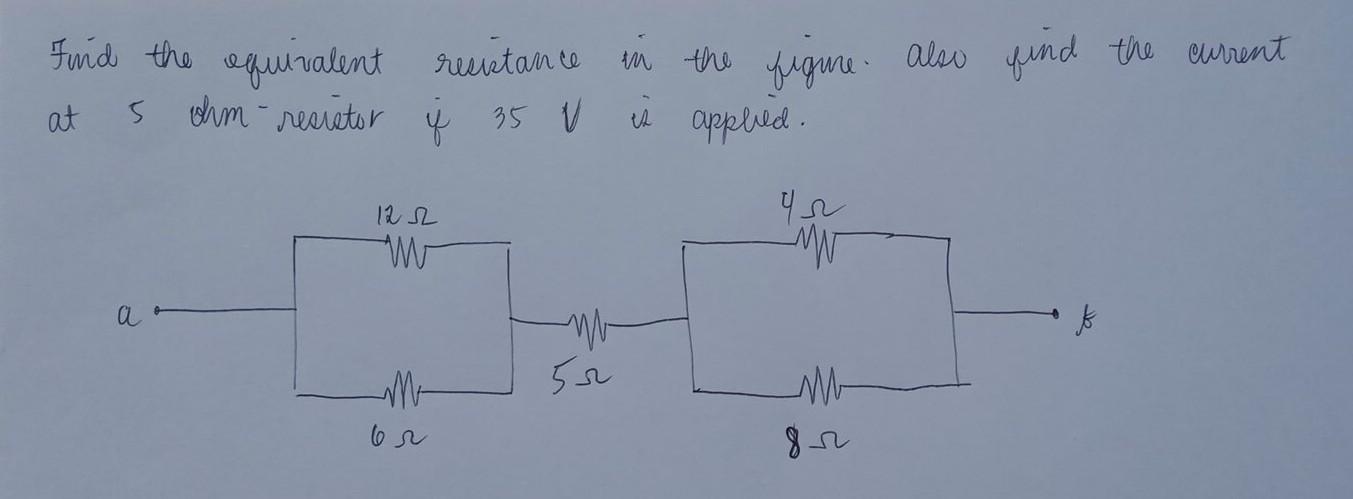 Find the equivalent resistance in the figure. Also find the current
at 5 ohm-resistor if 35 V is applied.
12 Ω
4 Ω
a
b
5 Ω
6 Ω
8 Ω